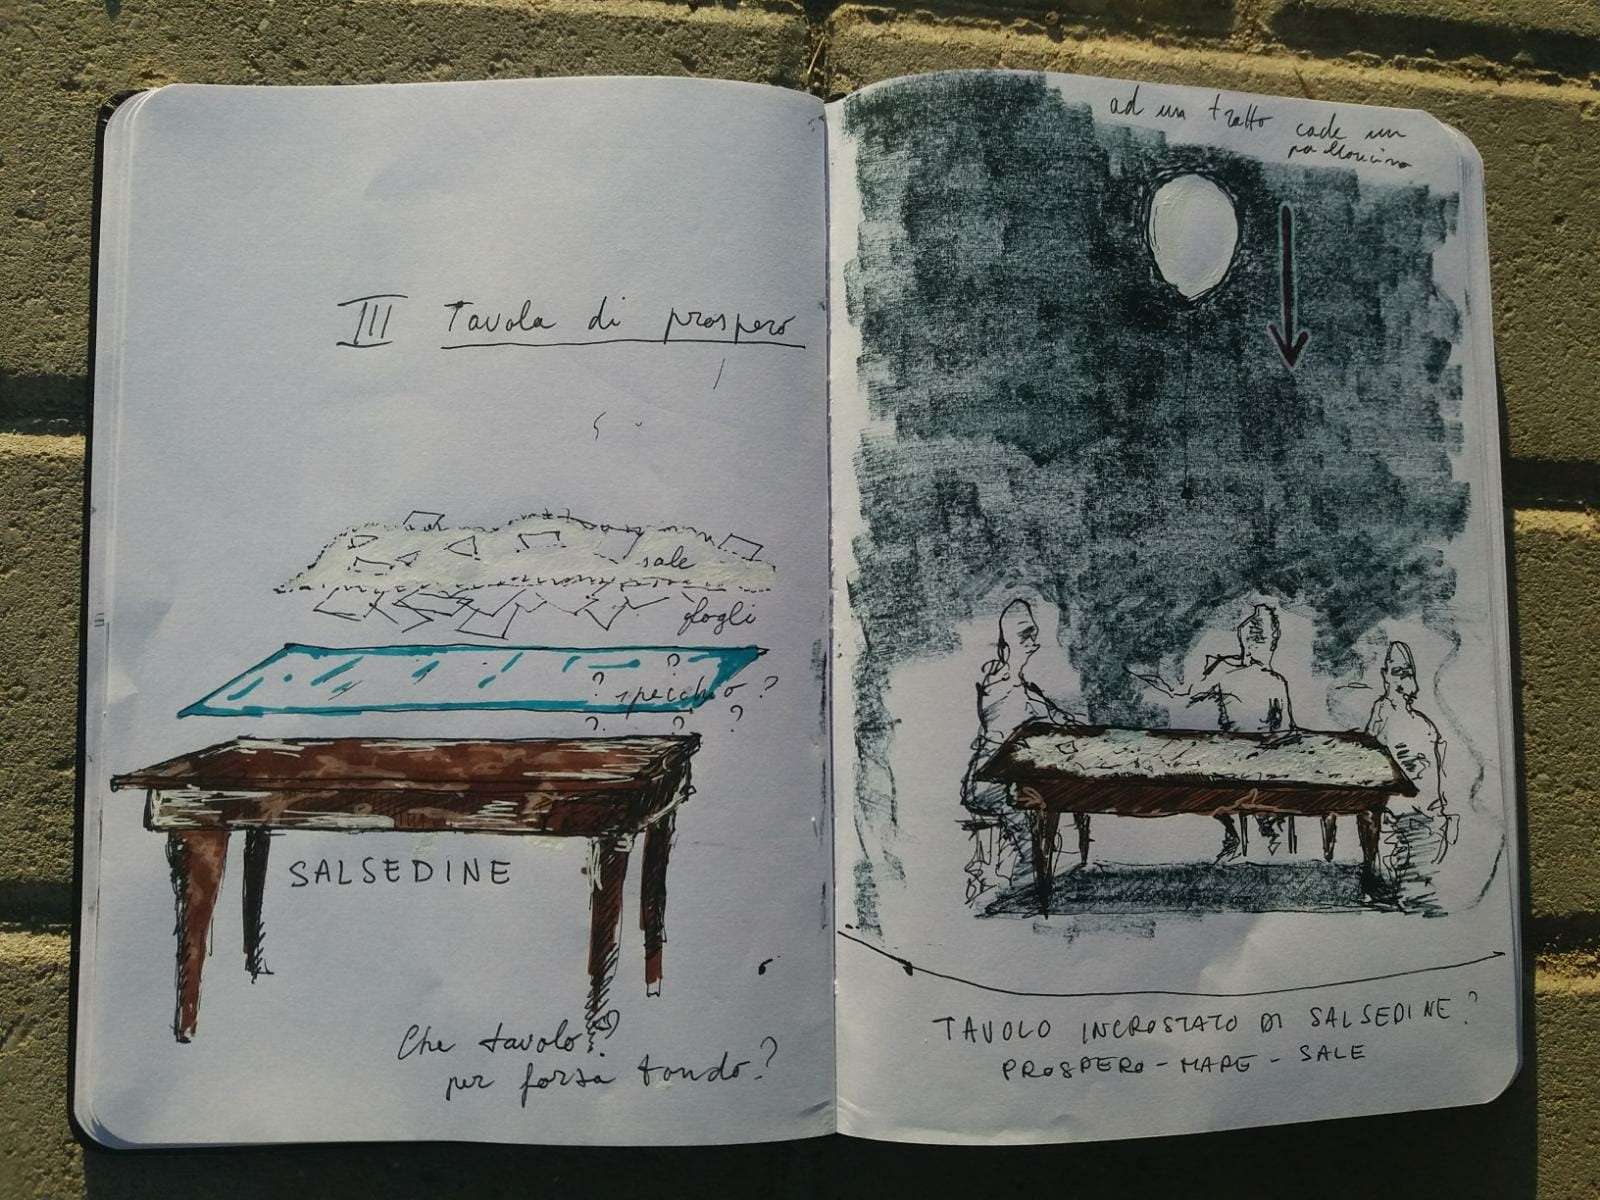 III Tavola di prospero
sale
fogli
? specchio ?
?
? ? ?
SALSEDINE
Che tavolo?
per forza tondo?
ad un tratto cade un
palloncino
TAVOLO INCROSTATO DI SALSEDINE?
PROSPERO - MARE - SALE